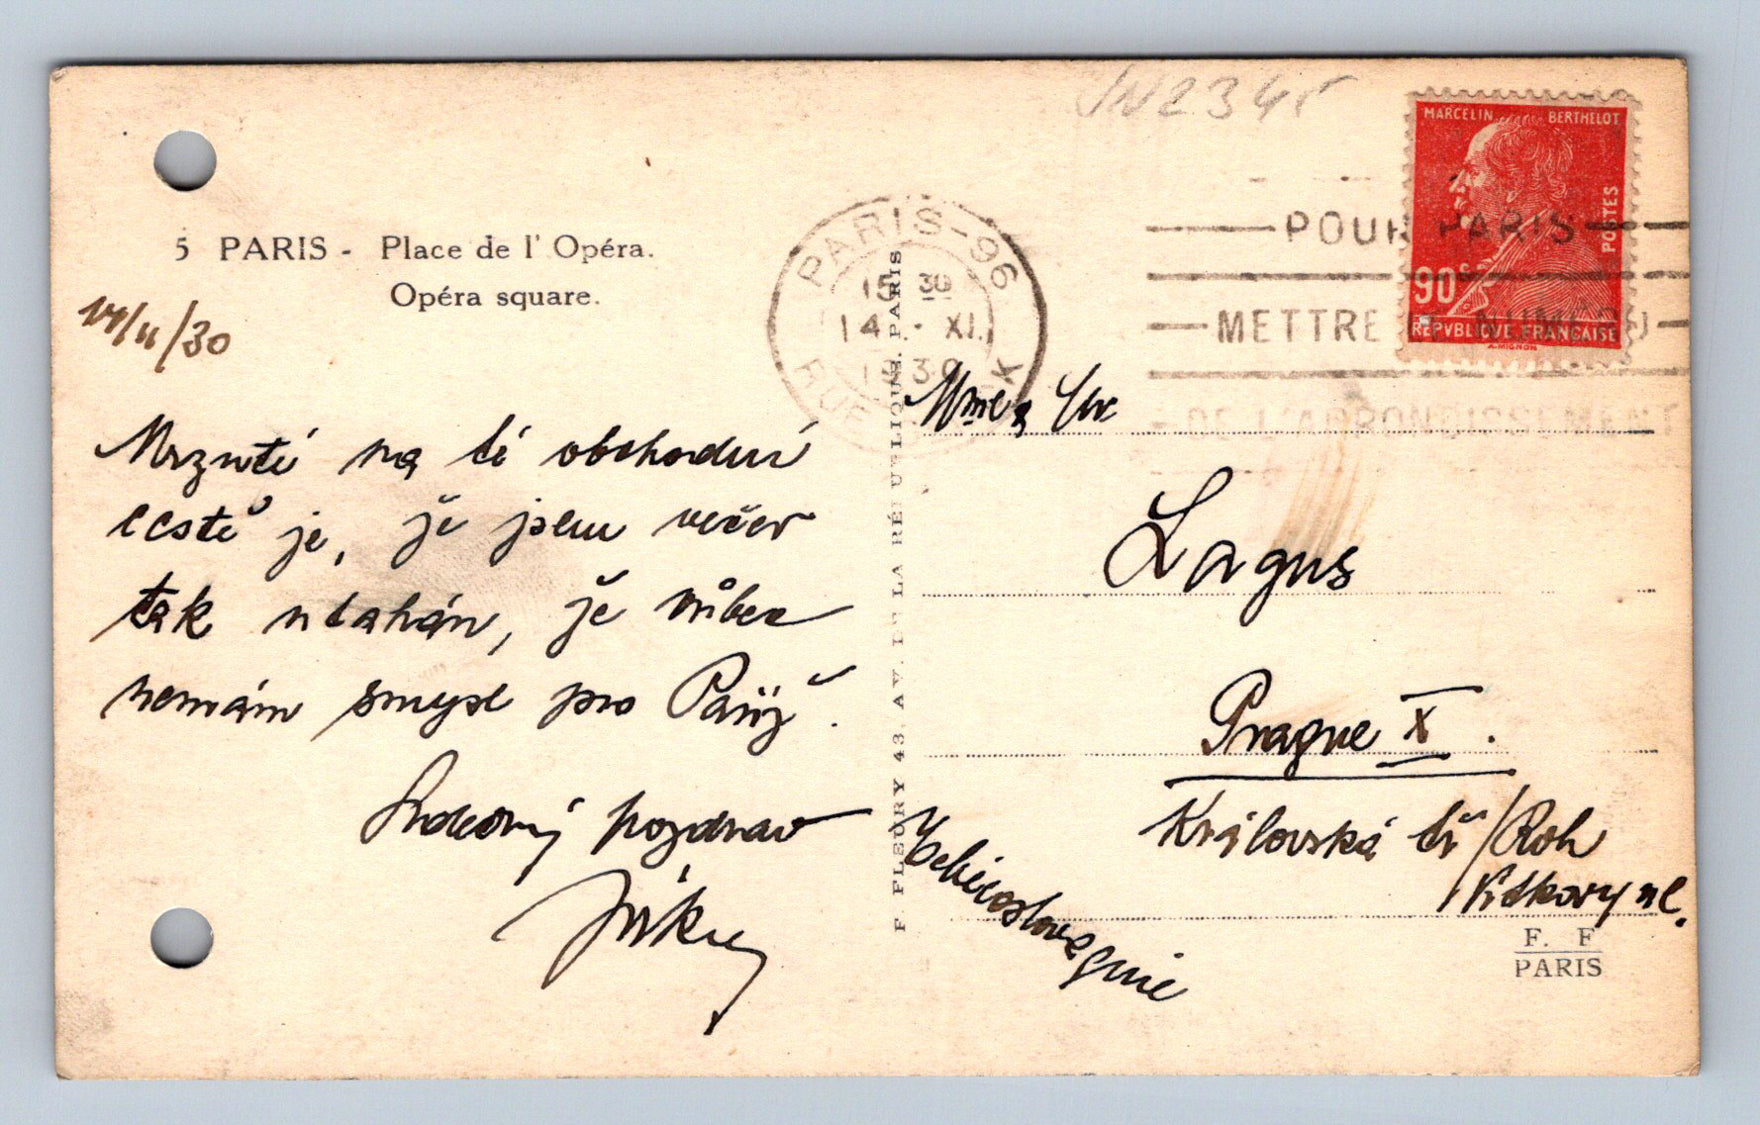 JV2345
MARCELIN BERTHELOT
POSTES
90c
REPVBLIQVE FRANCAISE
A. MIGNON
PARIS-96
15 30
14 · XI.
30
RUE
POUR PARIS
METTRE LE NUMERO
DE L'ARRONDISSEMENT
5 PARIS - Place de l' Opéra.
Opéra square.
14/11/30
Mrzuté na té obchodní
cestě je, že jsem večer
tak utahán, že vůbec
nemám smysl pro Paříž.
Srdečný pozdrav
F FLEURY 43, AV. DE LA RÉPUBLIQUE. PARIS
Mme &
Lagus
Prague X.
Královská tř/Roh
Vítkovy ul.
Tchécoslovaquie
F. F
PARIS